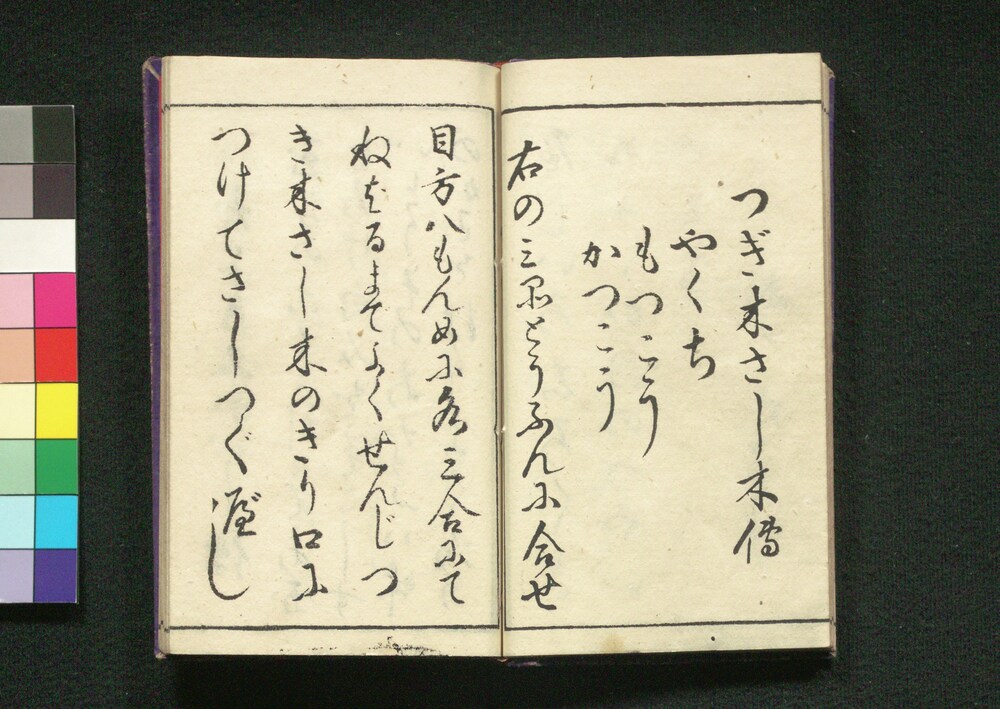 つぎ木さし木傳
やくち
もつこう
かつこう
右の三品とうふんに合せ
目方八もんめに水三合にて
ねばるまでよくせんじつ
き木さし木のきり口に
つけてさしつぐべし